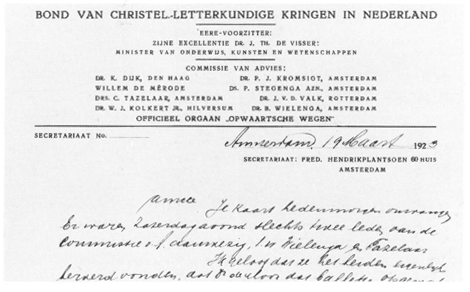 BOND VAN CHRISTEL.-LETTERKUNDIGE KRINGEN IN NEDERLAND
EERE-VOORZITTER:
ZIJNE EXCELLENTIE DR. J. TH. DE VISSER:
MINISTER VAN ONDERWIJS, KUNSTEN EN WETENSCHAPPEN
COMMISSIE VAN ADVIES:
DR. K. DIJK, DEN HAAG DR. P. J. KROMSIGT, AMSTERDAM
WILLEM DE MÉRODE DS. P. STEGENGA AZN., AMSTERDAM
DRS. C. TAZELAAR, AMSTERDAM DR. J. V. D. VALK, ROTTERDAM
DR. W. J. KOLKERT JR., HILVERSUM DR. B. WIELENGA, AMSTERDAM
OFFICIEEL ORGAAN „OPWAARTSCHE WEGEN"
SECRETARIAAT No. Amsterdam, 19 Maart 1923
SECRETARIAAT: FRED. HENDRIKPLANTSOEN 60 HUIS
AMSTERDAM
Amice Je kaart hedenmorgen ontvangen
Er waren Zaterdagavond slechts twee leden van de
commissie v. d. aanwezig, Dr Wielenga en Tazelaar
Ik geloof dat ze het beiden eigenlijk
vonden, dat